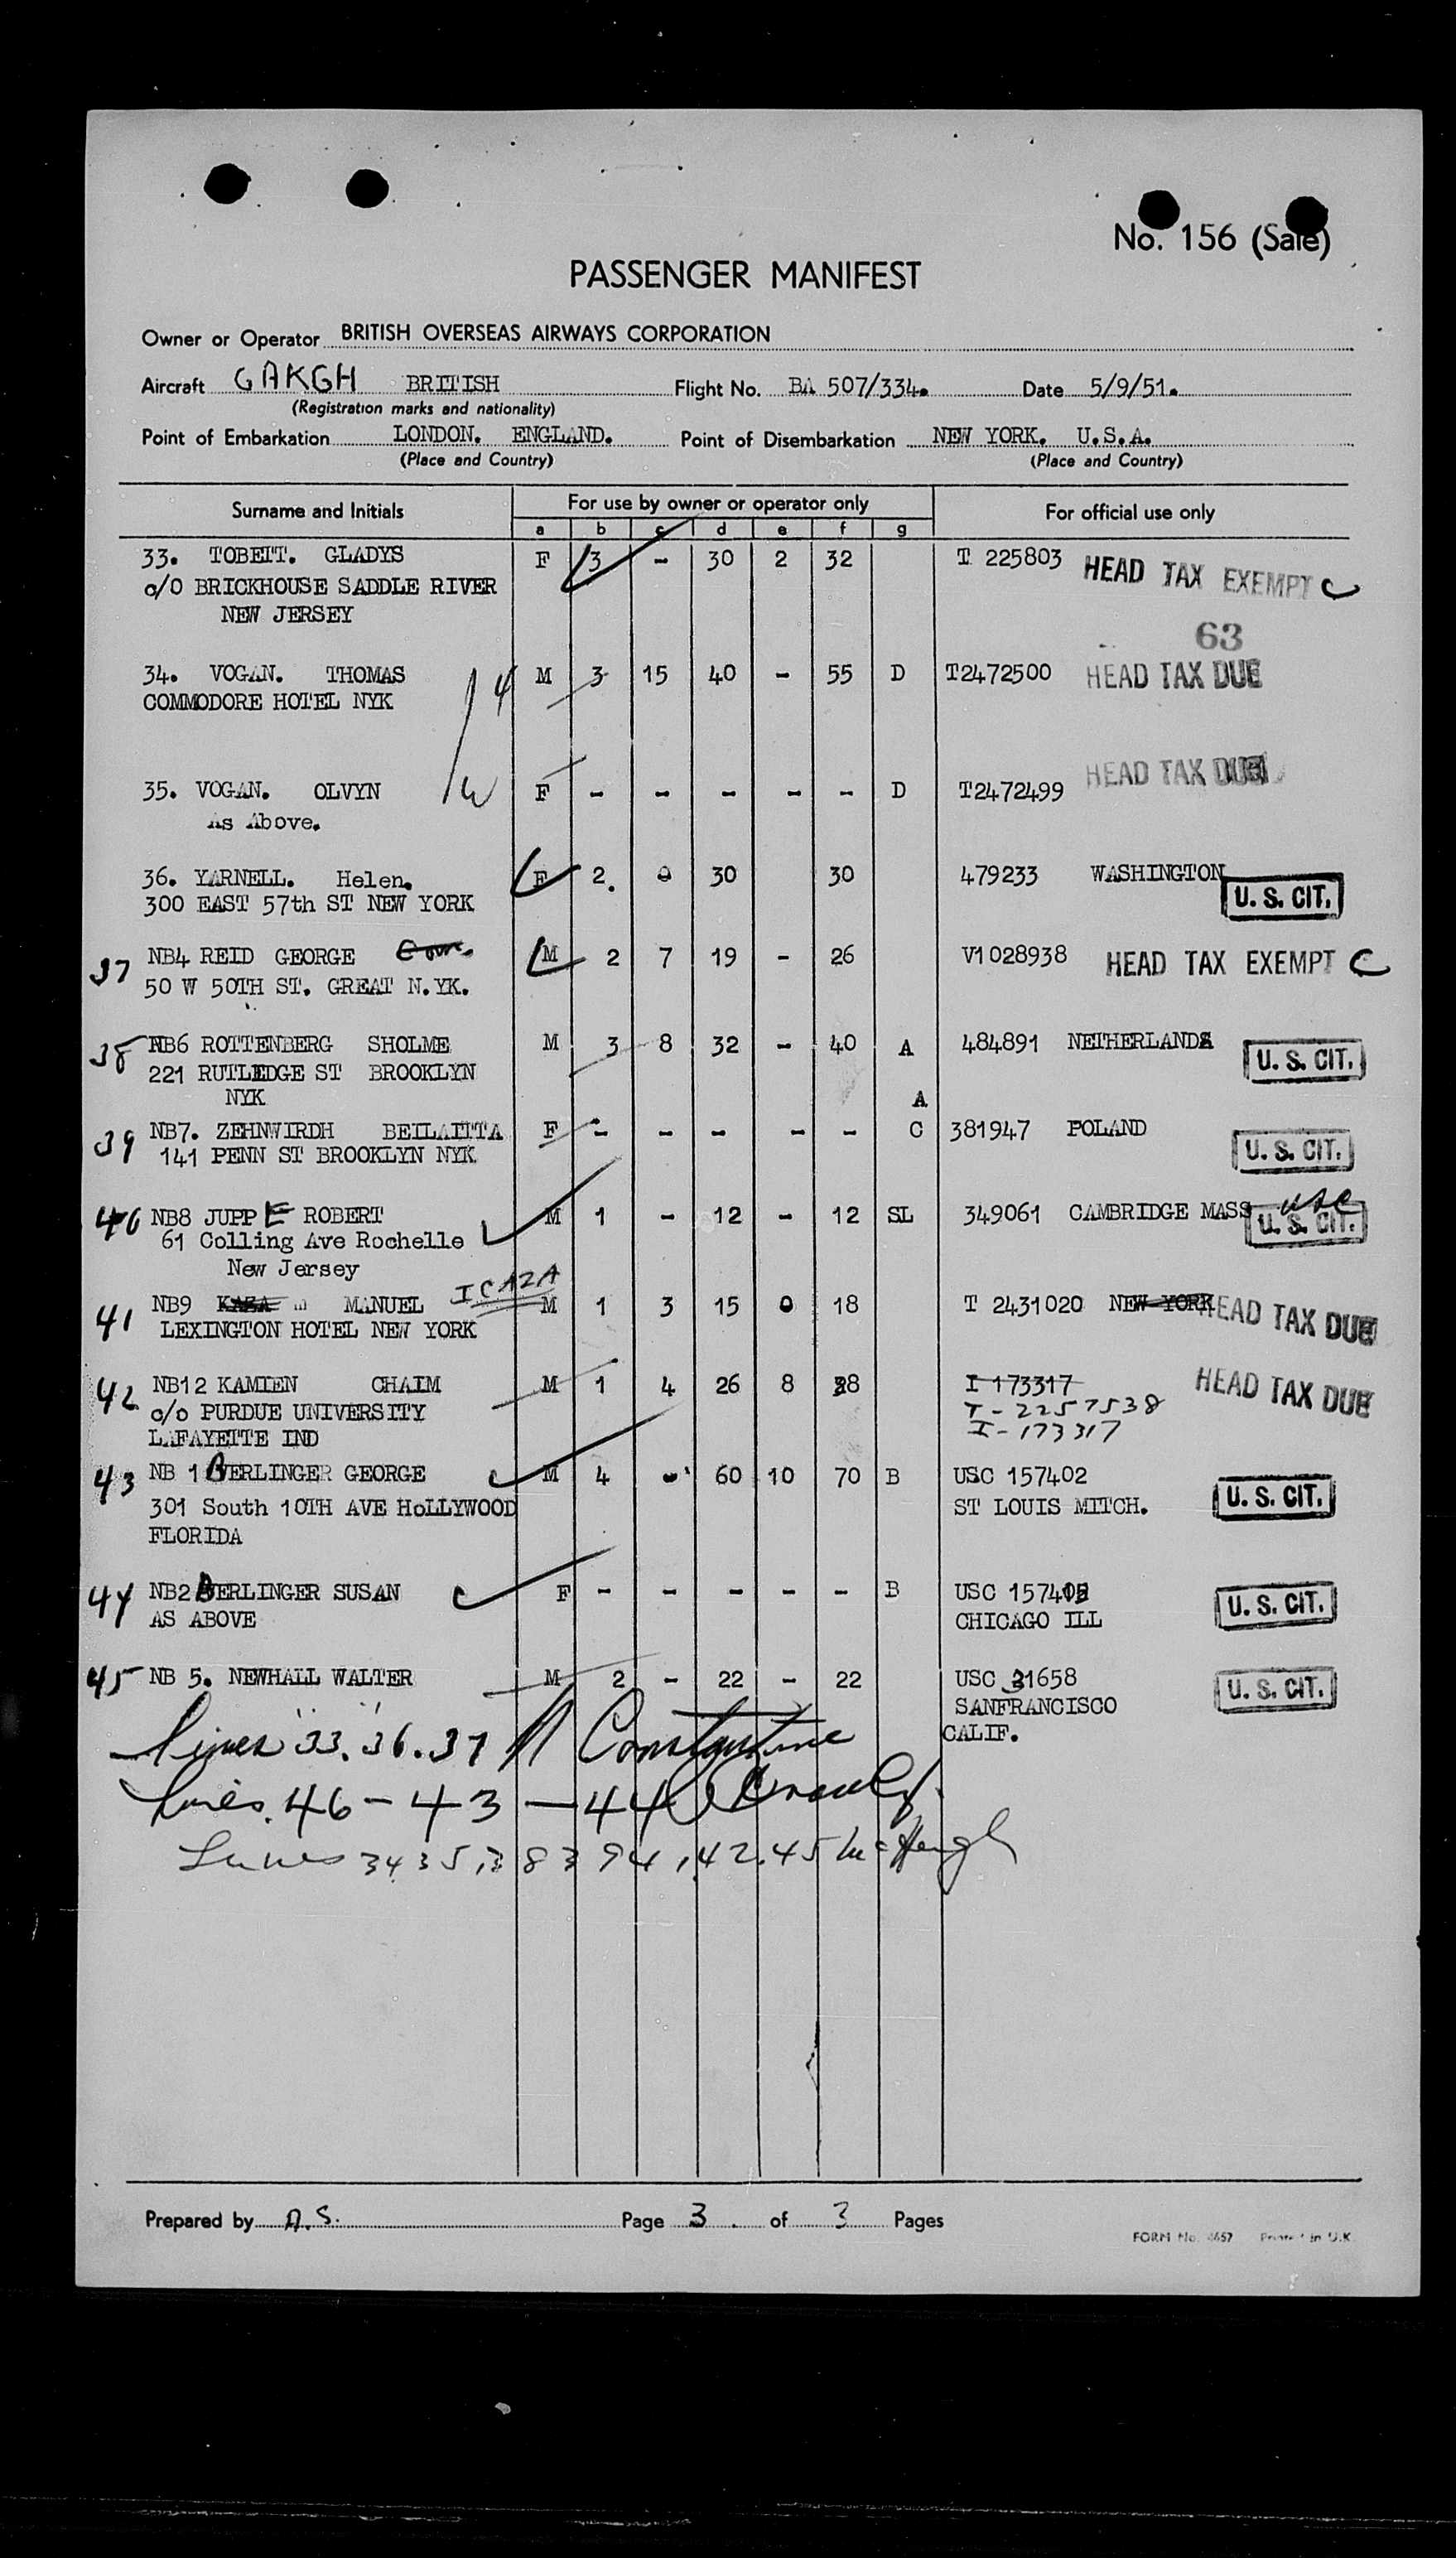 No. 156 (Sale)
PASSENGER MANIFEST
Owner or Operator BRITISH OVERSEAS AIRWAYS CORPORATION
Aircraft GAKGH BRITISH Flight No. BA 507/334. Date 5/9/51.
(Registration marks and nationality)
Point of Embarkation LONDON. ENGLAND. Point of Disembarkation NEW YORK. U.S.A.
(Place and Country) (Place and Country)
Surname and Initials For use by owner or operator only For official use only
a b c d e f g
33. TOBEIT. GLADYS F 3 - 30 2 32 T 225803 HEAD TAX EXEMPT C
c/O BRICKHOUSE SADDLE RIVER
NEW JERSEY
63
34. VOGAN. THOMAS M 3 15 40 - 55 D T2472500 HEAD TAX DUE
COMMODORE HOTEL NYK
35. VOGAN. OLVYN F - - - - - D T2472499 HEAD TAX DUE
As Above.
36. YARNELL. Helen. F 2. 0 30 30 479233 WASHINGTON U. S. CIT.
300 EAST 57th ST NEW YORK
37 NB4 REID GEORGE M 2 7 19 - 26 V1028938 HEAD TAX EXEMPT C
50 W 50TH ST. GREAT N.YK.
38 NB6 ROTTENBERG SHOLME M 3 8 32 - 40 A 484891 NETHERLANDS U. S. CIT.
221 RUTLEDGE ST BROOKLYN
NYK A
39 NB7. ZEHNWIRDH BEILAITTA F - - - - - C 381947 POLAND U. S. CIT.
141 PENN ST BROOKLYN NYK
40 NB8 JUPPE ROBERT M 1 - 12 - 12 SL 349061 CAMBRIDGE MASS usc U. S. CIT.
61 Colling Ave Rochelle
New Jersey
ICAZA
41 NB9 MANUEL M 1 3 15 0 18 T 2431020 NEW YORK HEAD TAX DUE
LEXINGTON HOTEL NEW YORK
42 NB12 KAMIEN CHAIM M 1 4 26 8 38 I 173317 HEAD TAX DUE
c/o PURDUE UNIVERSITY T-2257538
LAFAYETTE IND I-173317
43 NB 1 BERLINGER GEORGE M 4 - 60 10 70 B USC 157402 U. S. CIT.
301 South 10TH AVE HoLLYWOOD ST LOUIS MITCH.
FLORIDA
44 NB2 BERLINGER SUSAN F - - - - - B USC U. S. CIT.
AS ABOVE CHICAGO ILL
45 NB 5. NEWHALL WALTER M 2 - 22 - 22 USC 31658 U. S. CIT.
SANFRANCISCO
CALIF.
Lines 33. 36. 37 Constantine
Lines. 40-43-44
Lines 34 35, 38 39 41, 42. 45
Prepared by A.S. Page 3 of 3 Pages
FORM No. 4657 Printed in U.K.